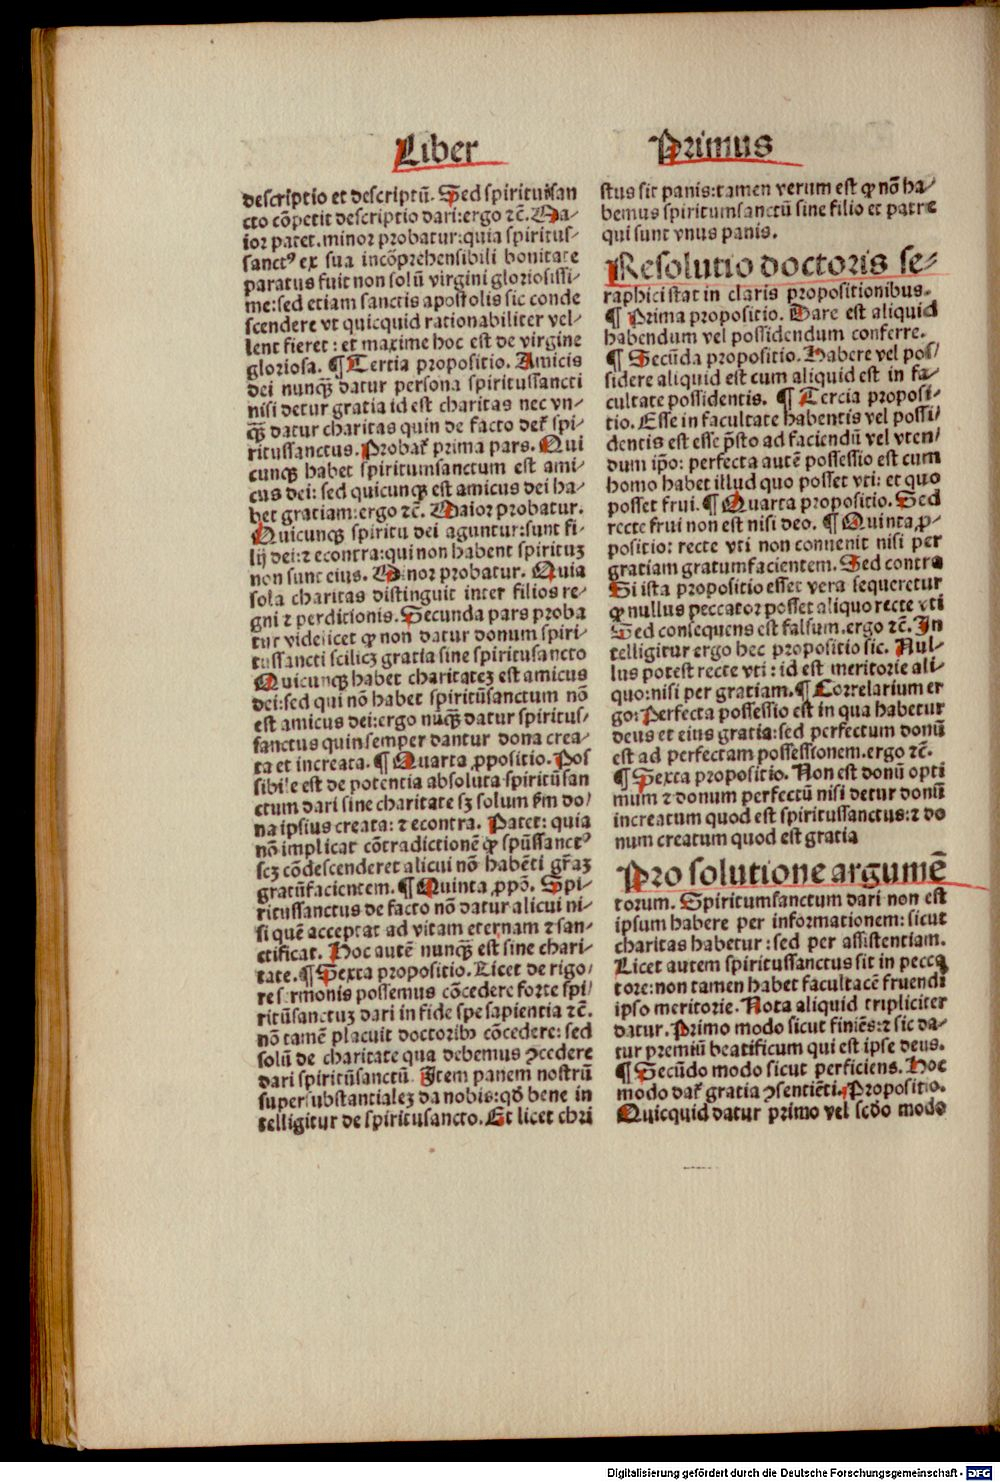 Liber
Primus
descriptio et descriptū. Sed spirituisan
cto cōpetit descriptio dari:ergo ⁊c̄. Ma⸗
ior patet. minor probatur:quia spiritus⸗
sanctꝰ ex sua incōprehensibili bonitate
paratus fuit non solū virgini gloriosissi⸗
me:sed etiam sanctis apostolis sic conde
scendere vt quicquid rationabiliter vel⸗
lent fieret : et maxime hoc est de virgine
gloriosa. ¶ Tertia propositio. Amicis
dei nunqꝫ̄ datur persona spiritussancti
nisi detur gratia id est charitas nec vn⸗
qꝫ̄ datur charitas quin de facto det̄ spi⸗
ritussanctus. Probat̄ prima pars. Qui
cunqꝫ habet spiritumsanctum est ami⸗
cus dei: sed quicunqꝫ est amicus dei ha⸗
bet gratiam:ergo ⁊c̄. Maior probatur.
Quicunqꝫ spiritu dei aguntur:sunt fi⸗
lij dei:⁊ econtra:qui non habent spirituꝫ
non sunt eius. Minor probatur. Quia
sola charitas distinguit inter filios re⸗
gni ⁊ perditionis. Secunda pars proba
tur videlicet ꝙ non datur donum spiri⸗
tussancti scilicꝫ gratia sine spiritusancto
Quicunqꝫ habet charitateꝫ est amicus
dei:sed qui nō habet spiritūsanctum nō
est amicus dei:ergo nūqꝫ̄ datur spiritus⸗
sanctus quin semper dantur dona crea⸗
ta et increata. ¶ Quarta ꝓpositio. Pos
sibile est de potentia absoluta spiritūsan
ctum dari sine charitate sꝫ solum ẜm do⸗
na ipsius creata: ⁊ econtra. Patet: quia
nō implicat cōtradictionē ꝙ spūssanctꝰ
scꝫ cōdescenderet alicui nō habēti gr̄aꝫ
gratūfacientem. ¶ Quinta ꝓpō. Spi⸗
ritussanctus de facto nō datur alicui ni⸗
si quē acceptat ad vitam eternam ⁊ san⸗
ctificat. Hoc autē nunqꝫ̄ est sine chari⸗
tate. ¶ Sexta propositio. Licet de rigo⸗
re sermonis possemus cōcedere forte spi⸗
ritūsanctuꝫ dari in fide spe sapientia ⁊c̄.
nō tamē placuit doctoribꝰ cōcedere: sed
solū de charitate qua debemus ꝯcedere
dari spiritūsanctū. Item panem nostrū
supersubstantialeꝫ da nobis:qđ bene in
telligitur de spiritusancto. Et licet chri
stus sit panis:tamen verum est ꝙ nō ha⸗
bemus spiritumsanctū sine filio et patre
qui sunt vnus panis.
Resolutio doctoris se⸗
raphici stat in claris propositionibus.
¶ Prima propositio. Dare est aliquid
habendum vel possidendum conferre.
¶ Secūda propositio. Habere vel pos⸗
sidere aliquid est cum aliquid est in fa⸗
cultate possidentis. ¶ Tercia proposi⸗
tio. Esse in facultate habentis vel possi⸗
dentis est esse p̄sto ad faciendū vel vten⸗
dum ip̄o: perfecta autē possessio est cum
homo habet illud quo posset vti: et quo
posset frui. ¶ Quarta propositio. Sed
recte frui non est nisi deo. ¶ Quinta ꝓ⸗
positio: recte vti non conuenit nisi per
gratiam gratumfacientem. Sed contra
Si ista propositio esset vera sequeretur
ꝙ nullus peccator posset aliquo recte vti
Sed consequens est falsum.ergo ⁊c̄. In
telligitur ergo hec propositio sic. Nul⸗
lus potest recte vti : id est meritorie ali⸗
quo:nisi per gratiam. ¶ Correlarium er
go: Perfecta possessio est in qua habetur
deus et eius gratia:sed perfectum donū
est ad perfectam possessionem.ergo ⁊c̄.
¶ Sexta propositio. Non est donū opti
mum ⁊ donum perfectū nisi detur donū
increatum quod est spiritussanctus:⁊ do
num creatum quod est gratia
Pro solutione argumē
torum. Spiritumsanctum dari non est
ipsum habere per informationem: sicut
charitas habetur : sed per assistentiam.
Licet autem spiritussanctus sit in pecca
tore:non tamen habet facultacē fruendi
ipso meritorie. Nota aliquid tripliciter
datur. Primo modo sicut finiēs:⁊ sic da⸗
tur premiū beatificum qui est ipse deus.
¶ Secūdo modo sicut perficiens. Hoc
modo dat̄ gratia ꝯsentiēti. Propositio.
Quicquid datur primo vel scđo modo
Digitalisierung gefördert durch die Deutsche Forschungsgemeinschaft - DFG